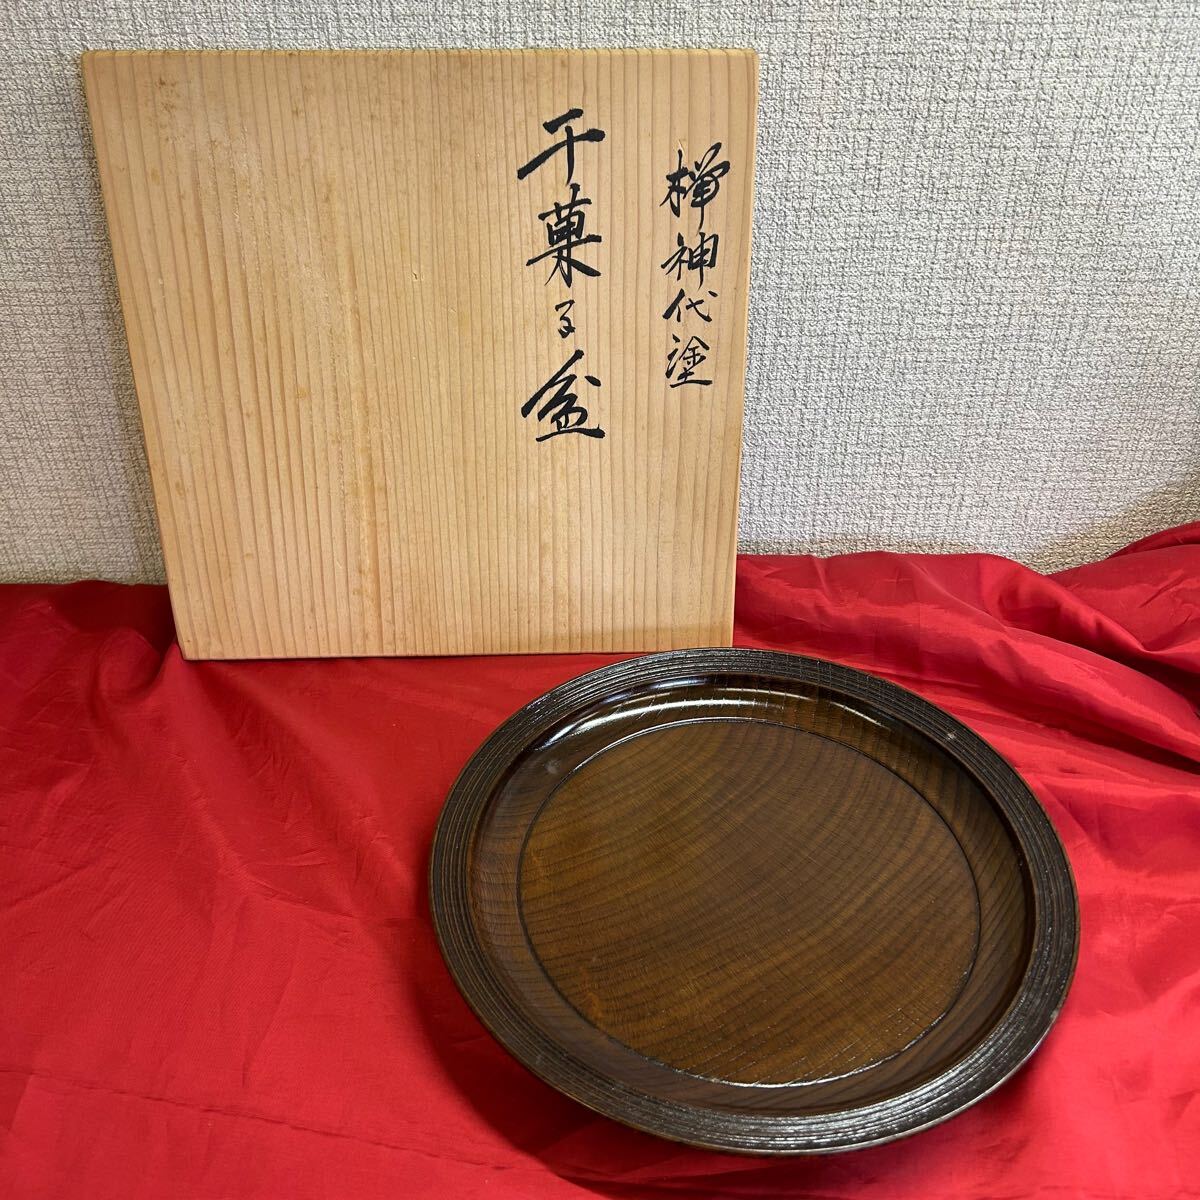 欅神代塗
干菓子盆